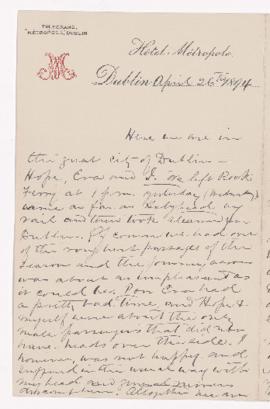 TELEGRAMS,
"METROPOLE, DUBLIN"
Hotel Métropole
Dublin April 26th 1894
Here we are in
this great city of Dublin –
Hope, Eva and I. We left Rock
Ferry at 1 p.m. yesterday (Wednesday)
came as far as Holyhead by
rail and then took steamer for
Dublin. Of course we had one
of the roughest passages of the
season and the journey across
was about as unpleasant as
it could be. Poor Eva had
a pretty bad time and Hope &
myself were about the only
male passengers that did not
have heads over the side. I
however, was not happy and
suffered in the usual way with
my head and
Altogether we were